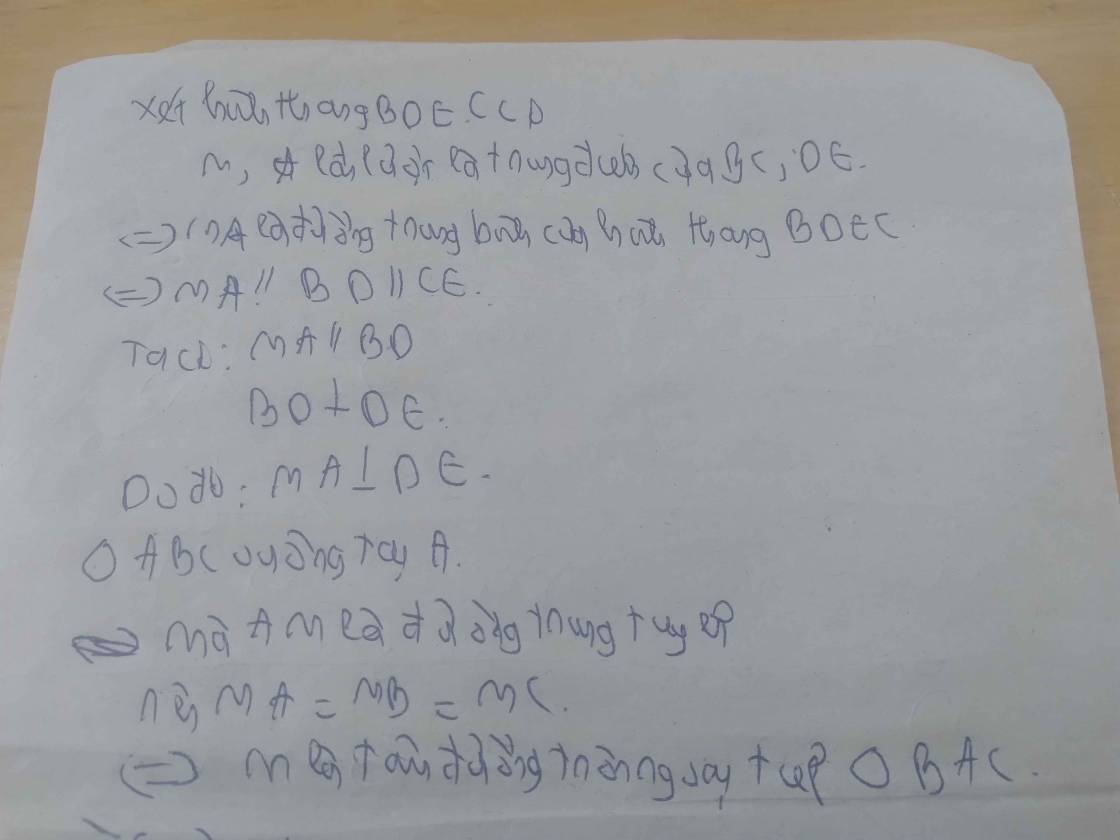 Xét hình thang BDEC có
M, A lần lượt là trung điểm của BC, DE.
<=> MA là đường trung bình của hình thang BDEC
<=> MA // BD // CE.
Ta có: MA // BD
BD ⊥ DE.
Do đó: MA ⊥ DE.
△ ABC vuông tại A.
mà AM là đường trung tuyến
nên MA = MB = MC.
<=> M là tâm đường tròn ngoại tiếp △ BAC.